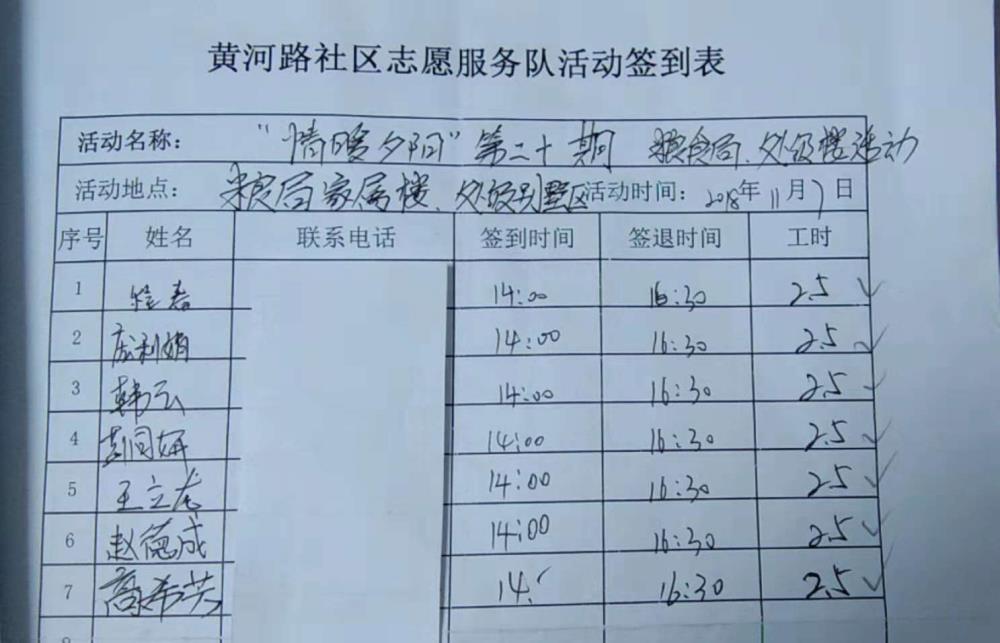 黄河路社区志愿服务队活动签到表
活动名称： “情暖夕阳”第二十期 粮食局、处级楼活动
活动地点： 粮食局家属楼、处级别墅区 活动时间：2018年11月7日
序号 姓名 联系电话 签到时间 签退时间 工时
1 14:00 16:30 2.5 ✓
2 庞利娟 14:00 16:30 2.5 ✓
3 韩云 14:00 16:30 2.5 ✓
4 彭同妍 14:00 16:30 2.5 ✓
5 王立志 14:00 16:30 2.5 ✓
6 赵德成 14:00 16:30 2.5 ✓
7 高希芸 14: 16:30 2.5 ✓